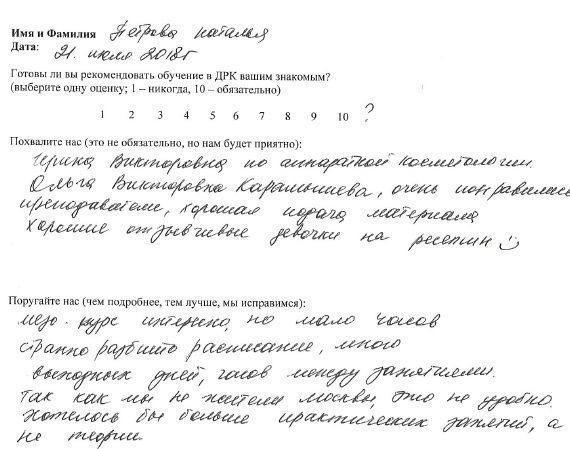 Имя и Фамилия Петрова Наталья
Дата: 21. июля 2018г
Готовы ли вы рекомендовать обучение в ДРК вашим знакомым?
(выберите одну оценку; 1 – никогда, 10 – обязательно)
1 2 3 4 5 6 7 8 9 10 ?
Похвалите нас (это не обязательно, но нам будет приятно):
Ирина Викторовна по аппаратной косметологии.
Ольга Викторовна, очень понравились
преподаватели, хорошая подача материала
хорошие отзывчивые девочки на ресепшн
Поругайте нас (чем подробнее, тем лучше, мы исправимся):
мезо-курс интересно, но мало часов
странно разбито расписание, много
выходных дней, часов между занятиями.
Так как мы не жители москвы, это не удобно.
Хотелось бы больше практических занятий, а
не теории.